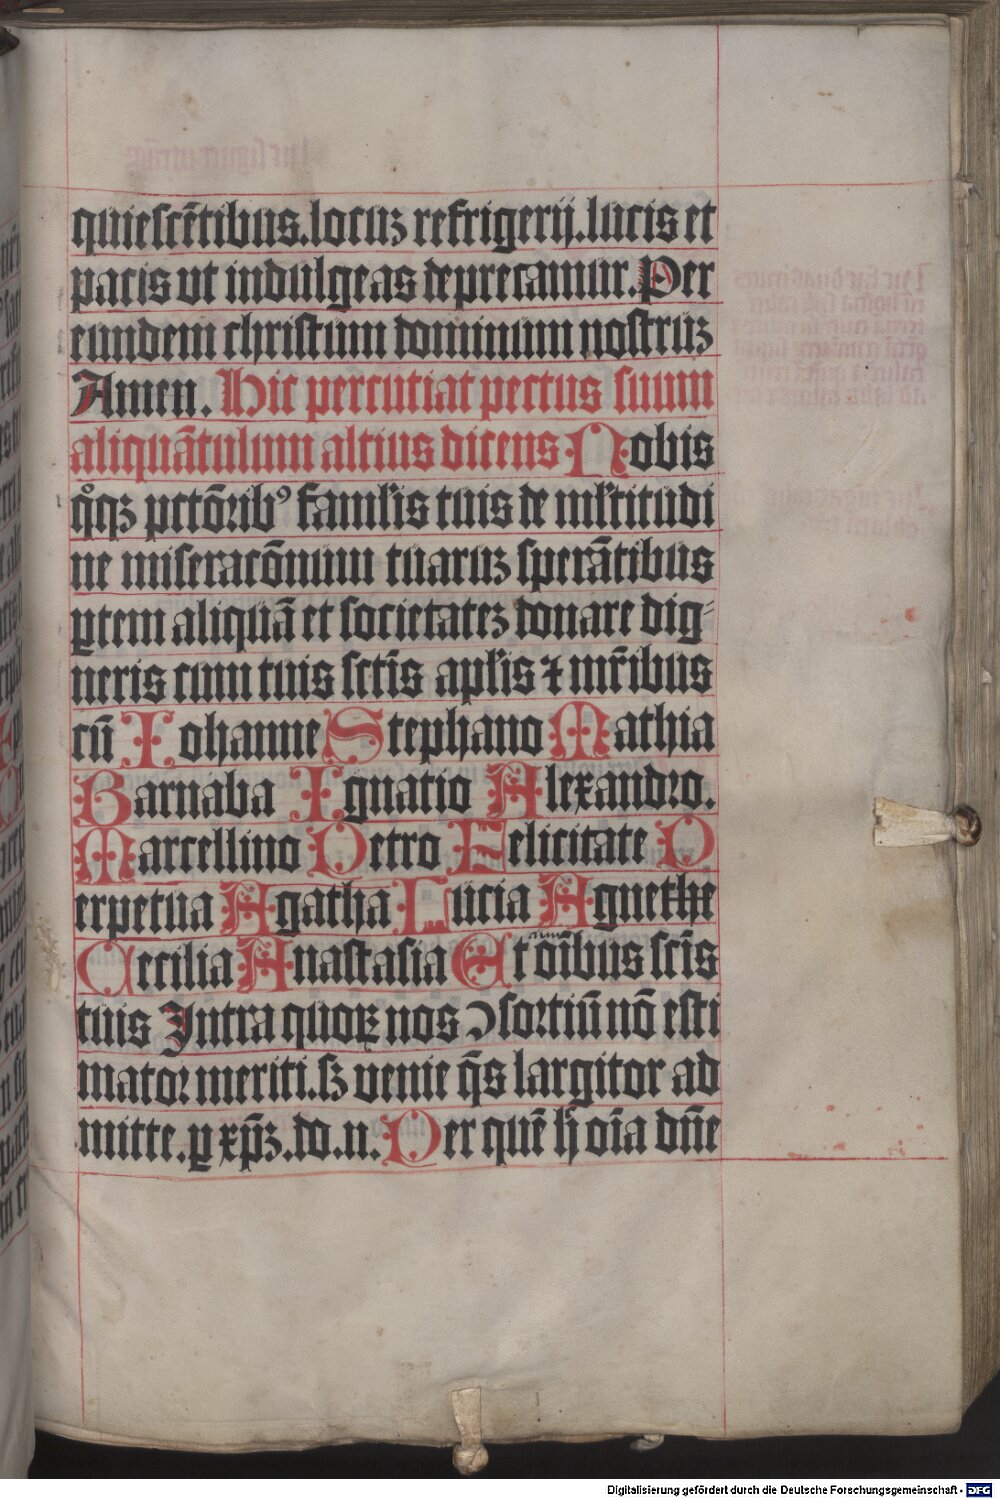 quiescētibus.locuꝫ refrigerij.lucis et
pacis vt indulgeas deprecamur.Per
eundem christum dominum nostruꝫ
Amen. Hic percutiat pectus suum
aliquātulum altius dicens Nobis
qͦqꝫ pctōribꝰ famul'is tuis de ml'titudi
ne miseracōnum tuaruꝫ sperātibus
ꝑtem aliquā et societateꝫ donare dig⸗
neris cum tuis sctīs apl'is ⁊ mr̄ibus
cū Iohanne Stephano Mathia
Barnaba Ignatio Alexandro.
Marcellino Petro Felicitate P
erpetua Agatha Lucia Agnethe
Cecilia Anastasia Et oībus scīs
tuis Intra quoꝝ nos ↄsortiū nō esti
mator meriti.sꝫ venie q̄s largitor ad
mitte.ꝑ xp̄ꝫ.do.n. Per quē h̄ oīa dn̄e
Digitalisierung gefördert durch die Deutsche Forschungsgemeinschaft - DFG